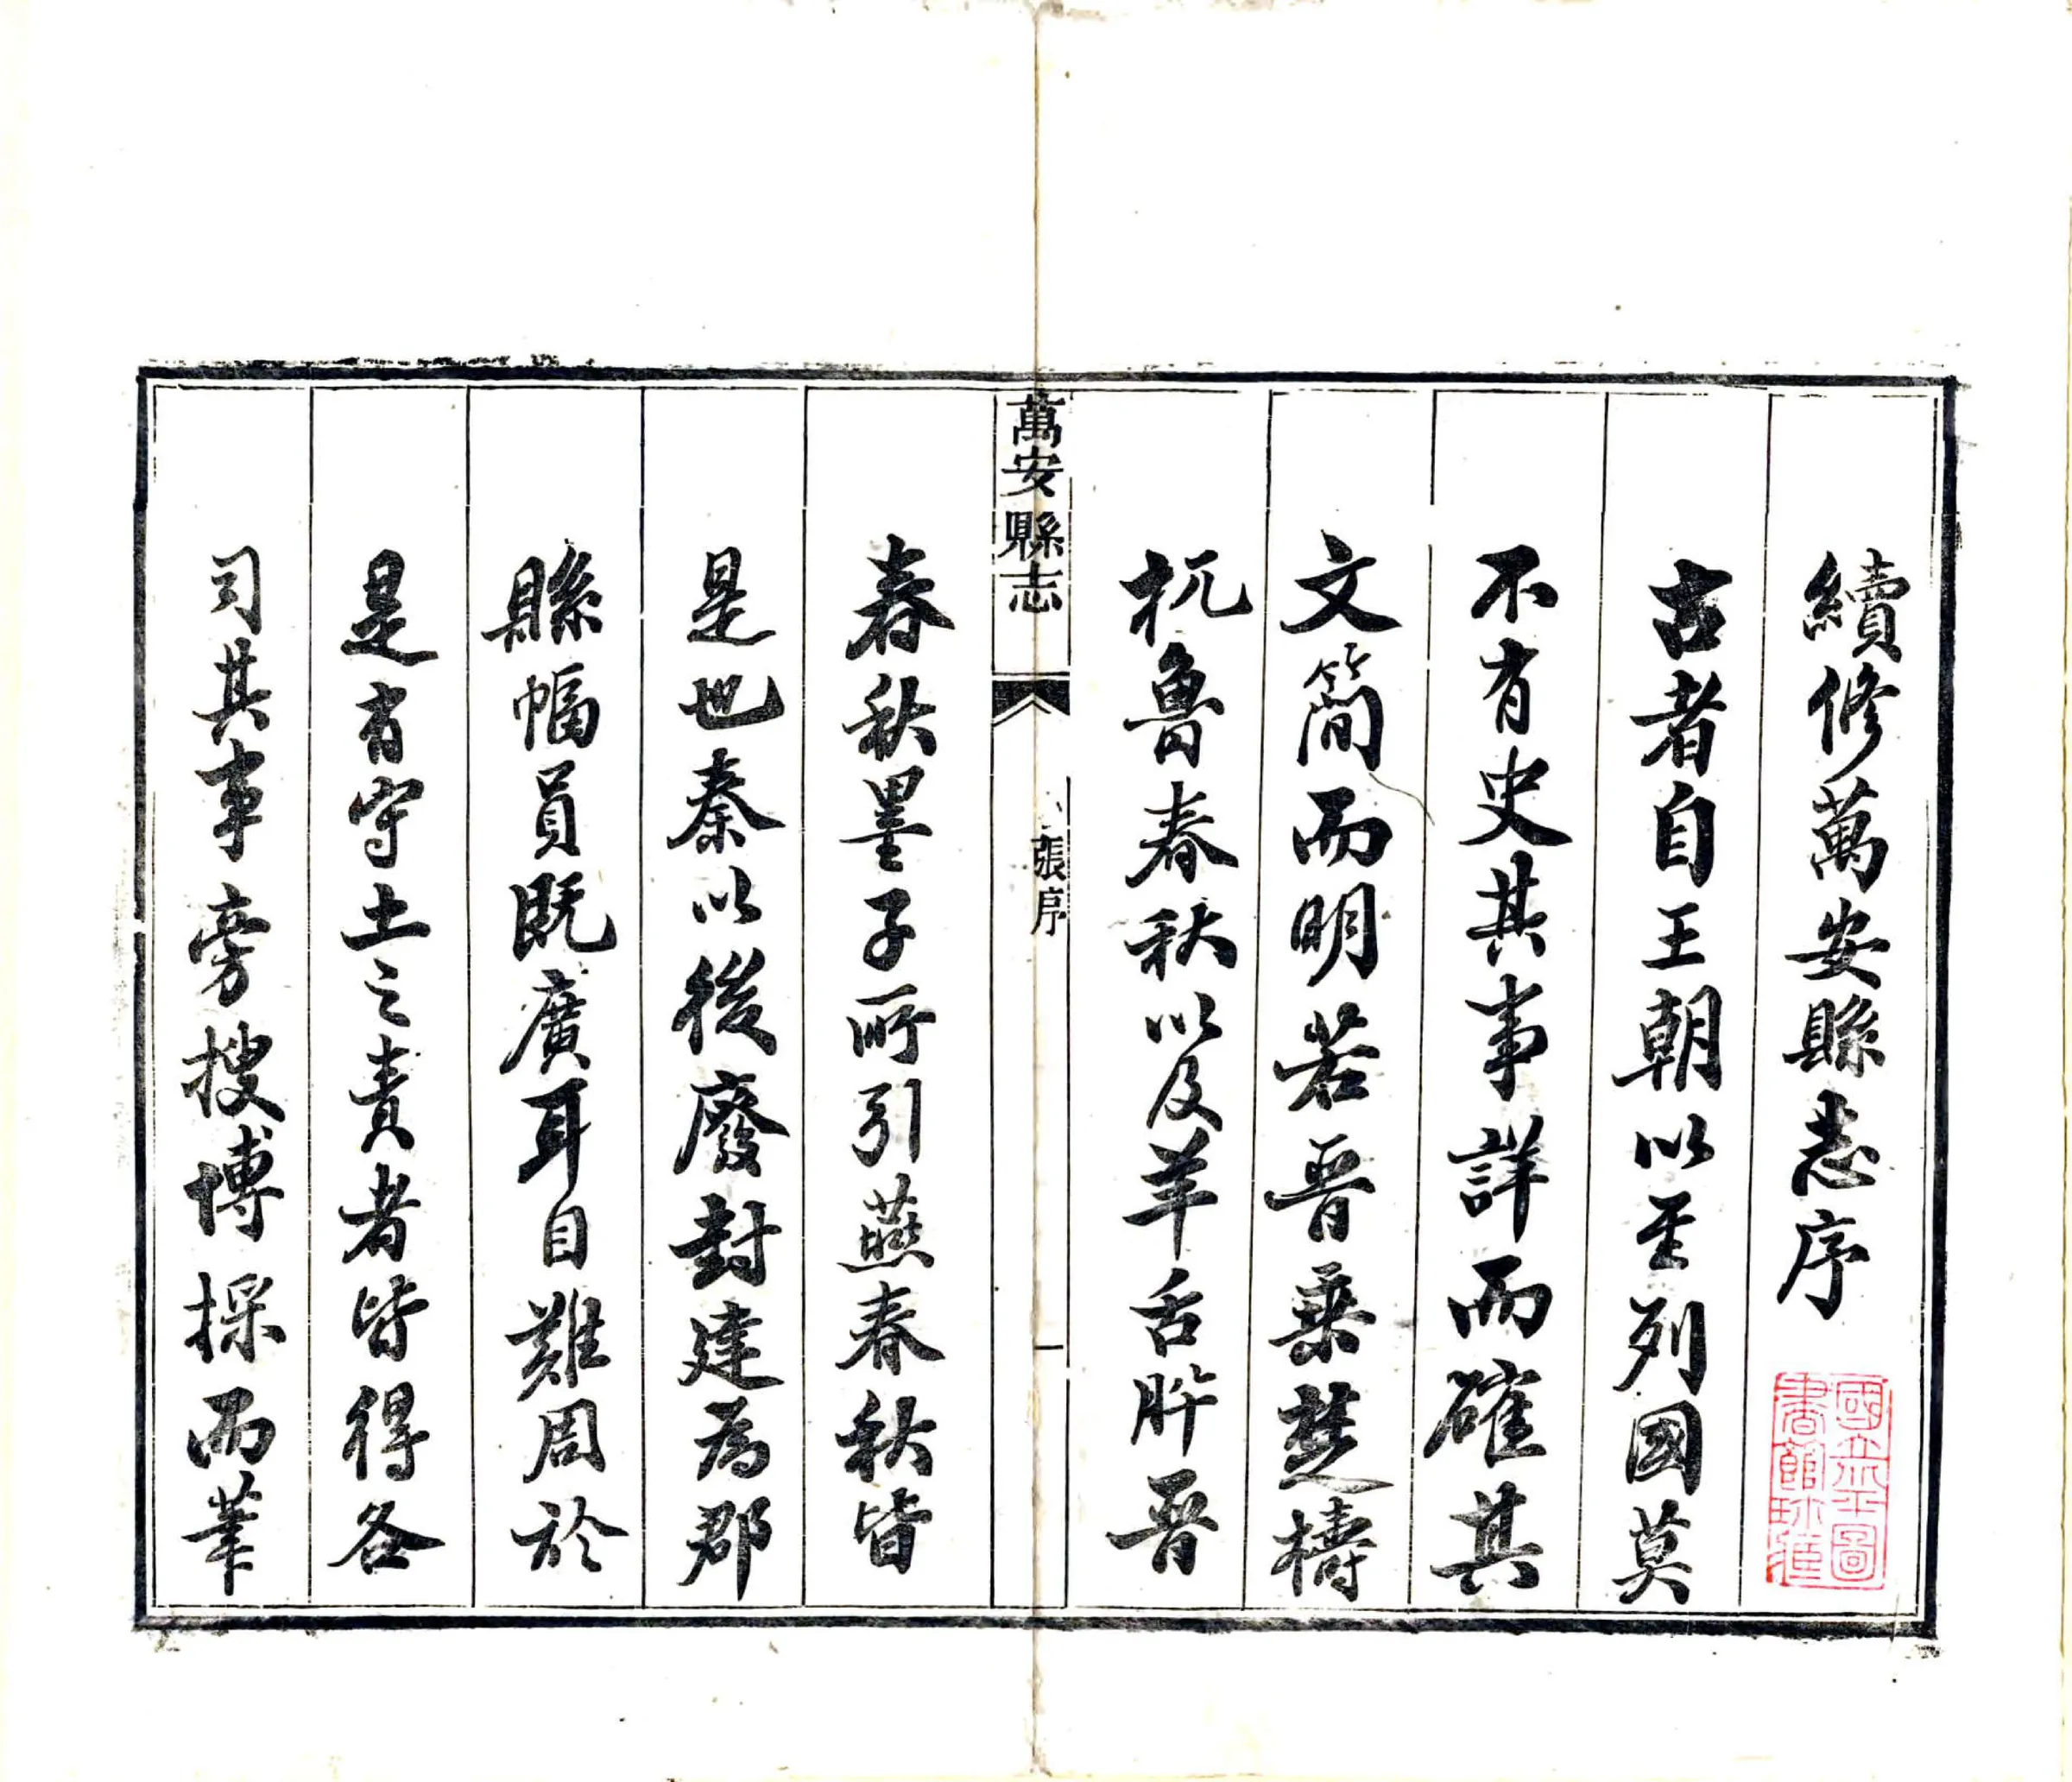 續修萬安縣志序
國立北平圖
書館珍藏
古者自王朝以至列國莫
不有史其事詳而確其
文簡而明若晉乘楚檮
杌魯春秋以及羊舌肸晉
萬安縣志
張序
一
春秋墨子所引燕春秋皆
是也秦以後廢封建為郡
縣幅員既廣耳目難周於
是有守土之責者皆得各
司其事旁搜博採而筆